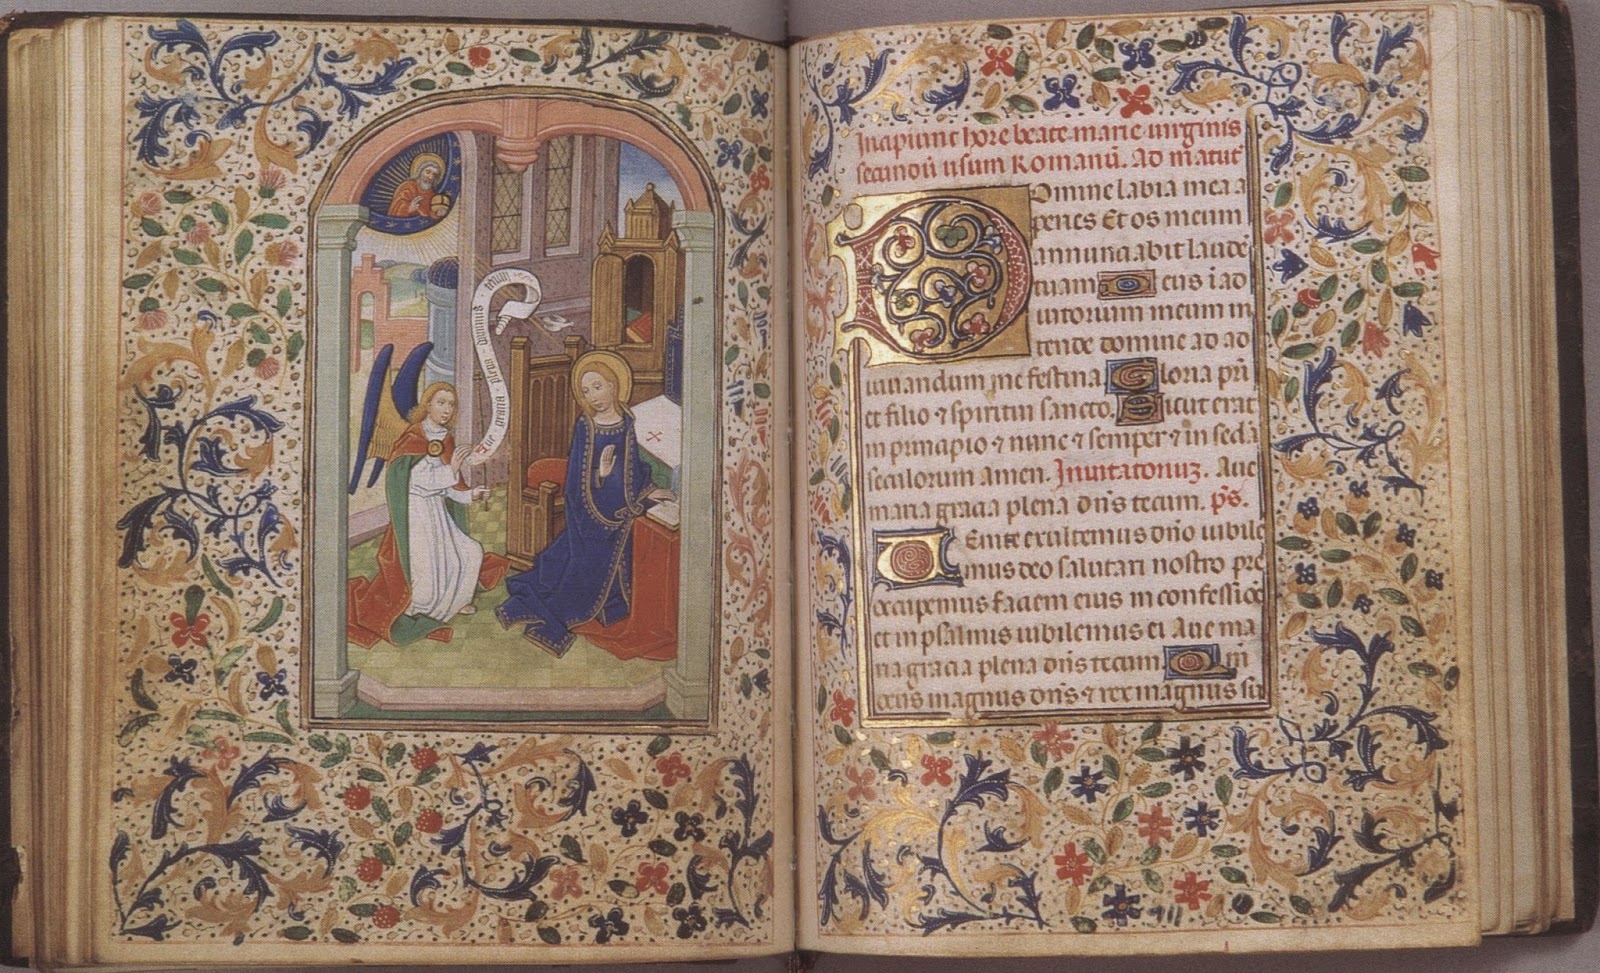 Aue gracia plena dominus tecum
Incipiunt hore beate marie uirginis
secundū usum Romanū. Ad matut̄
Domine labia mea a
peries Et os meum
annunciabit laude
tuam Deus i ad
iutorium meum in
tende domine ad ad
iuuandum me festina Gloria pr̄i
et filio ⁊ spiritui sancto. Sicut erat
in principio ⁊ nunc ⁊ semper ⁊ in secl̄a
seculorum amen. Inuitatoriuꝫ. Aue
maria gracia plena dn̄s tecum. p̄s.
Uenite exultemus dn̄o iubile
mus deo salutari nostro pre
occupemus faciem eius in confessiōe
et in psalmis iubilemus ei Aue ma
ria gracia plena dn̄s tecum Qm̄
deus magnus dn̄s ⁊ rex magnus su